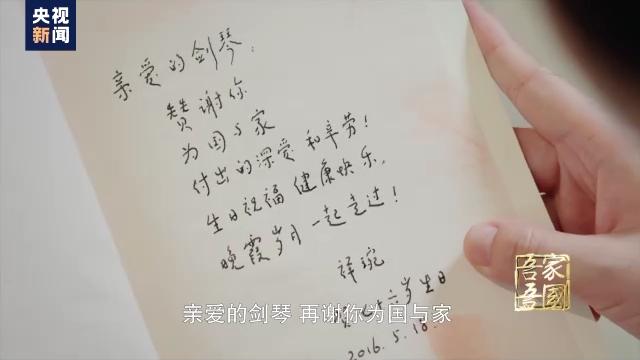 央视
新闻
亲爱的剑琴：
赞谢你
为国与家
付出的深爱和辛劳！
生日祝福 健康快乐，
晚霞岁月一起走过！
祥琬
六岁生日
2016.5.18.
吾家
吾國
亲爱的剑琴 再谢你为国与家